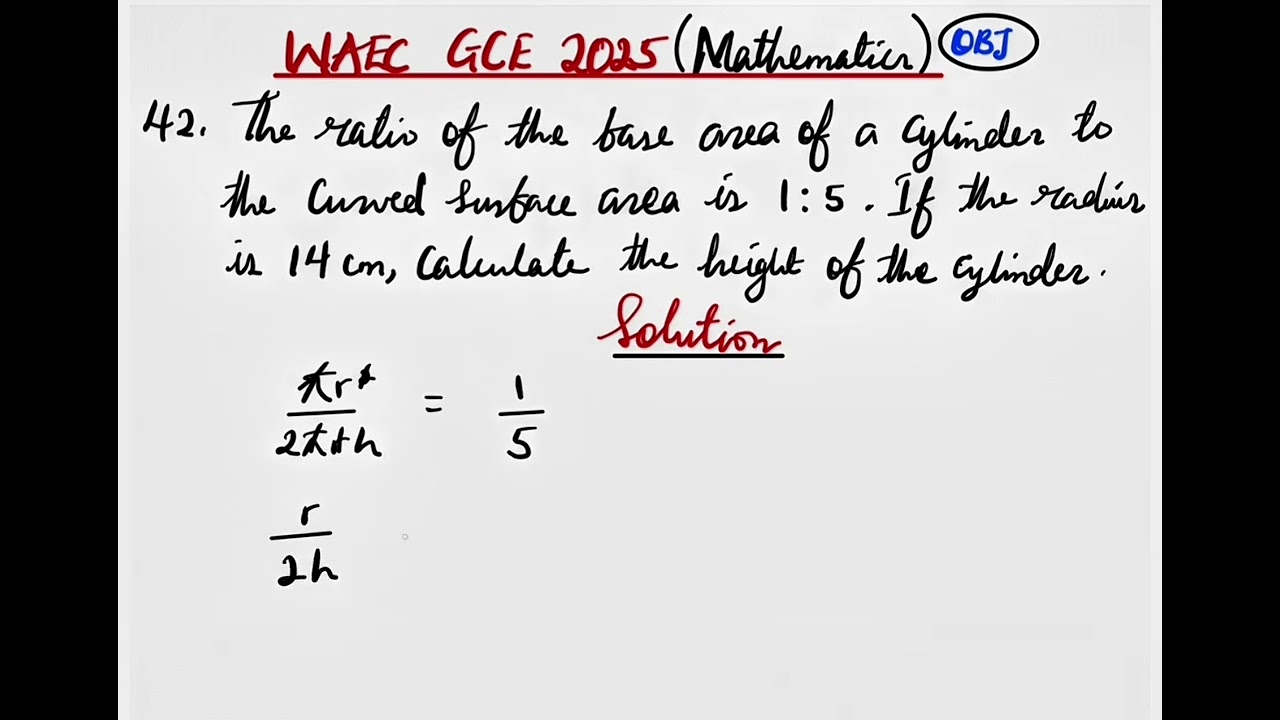 WAEC GCE 2025 (Mathematics) OBJ
42. The ratio of the base area of a cylinder to
the curved surface area is 1:5. If the radius
is 14 cm, calculate the height of the cylinder.
Solution
πr² / 2πrh = 1/5
r / 2h